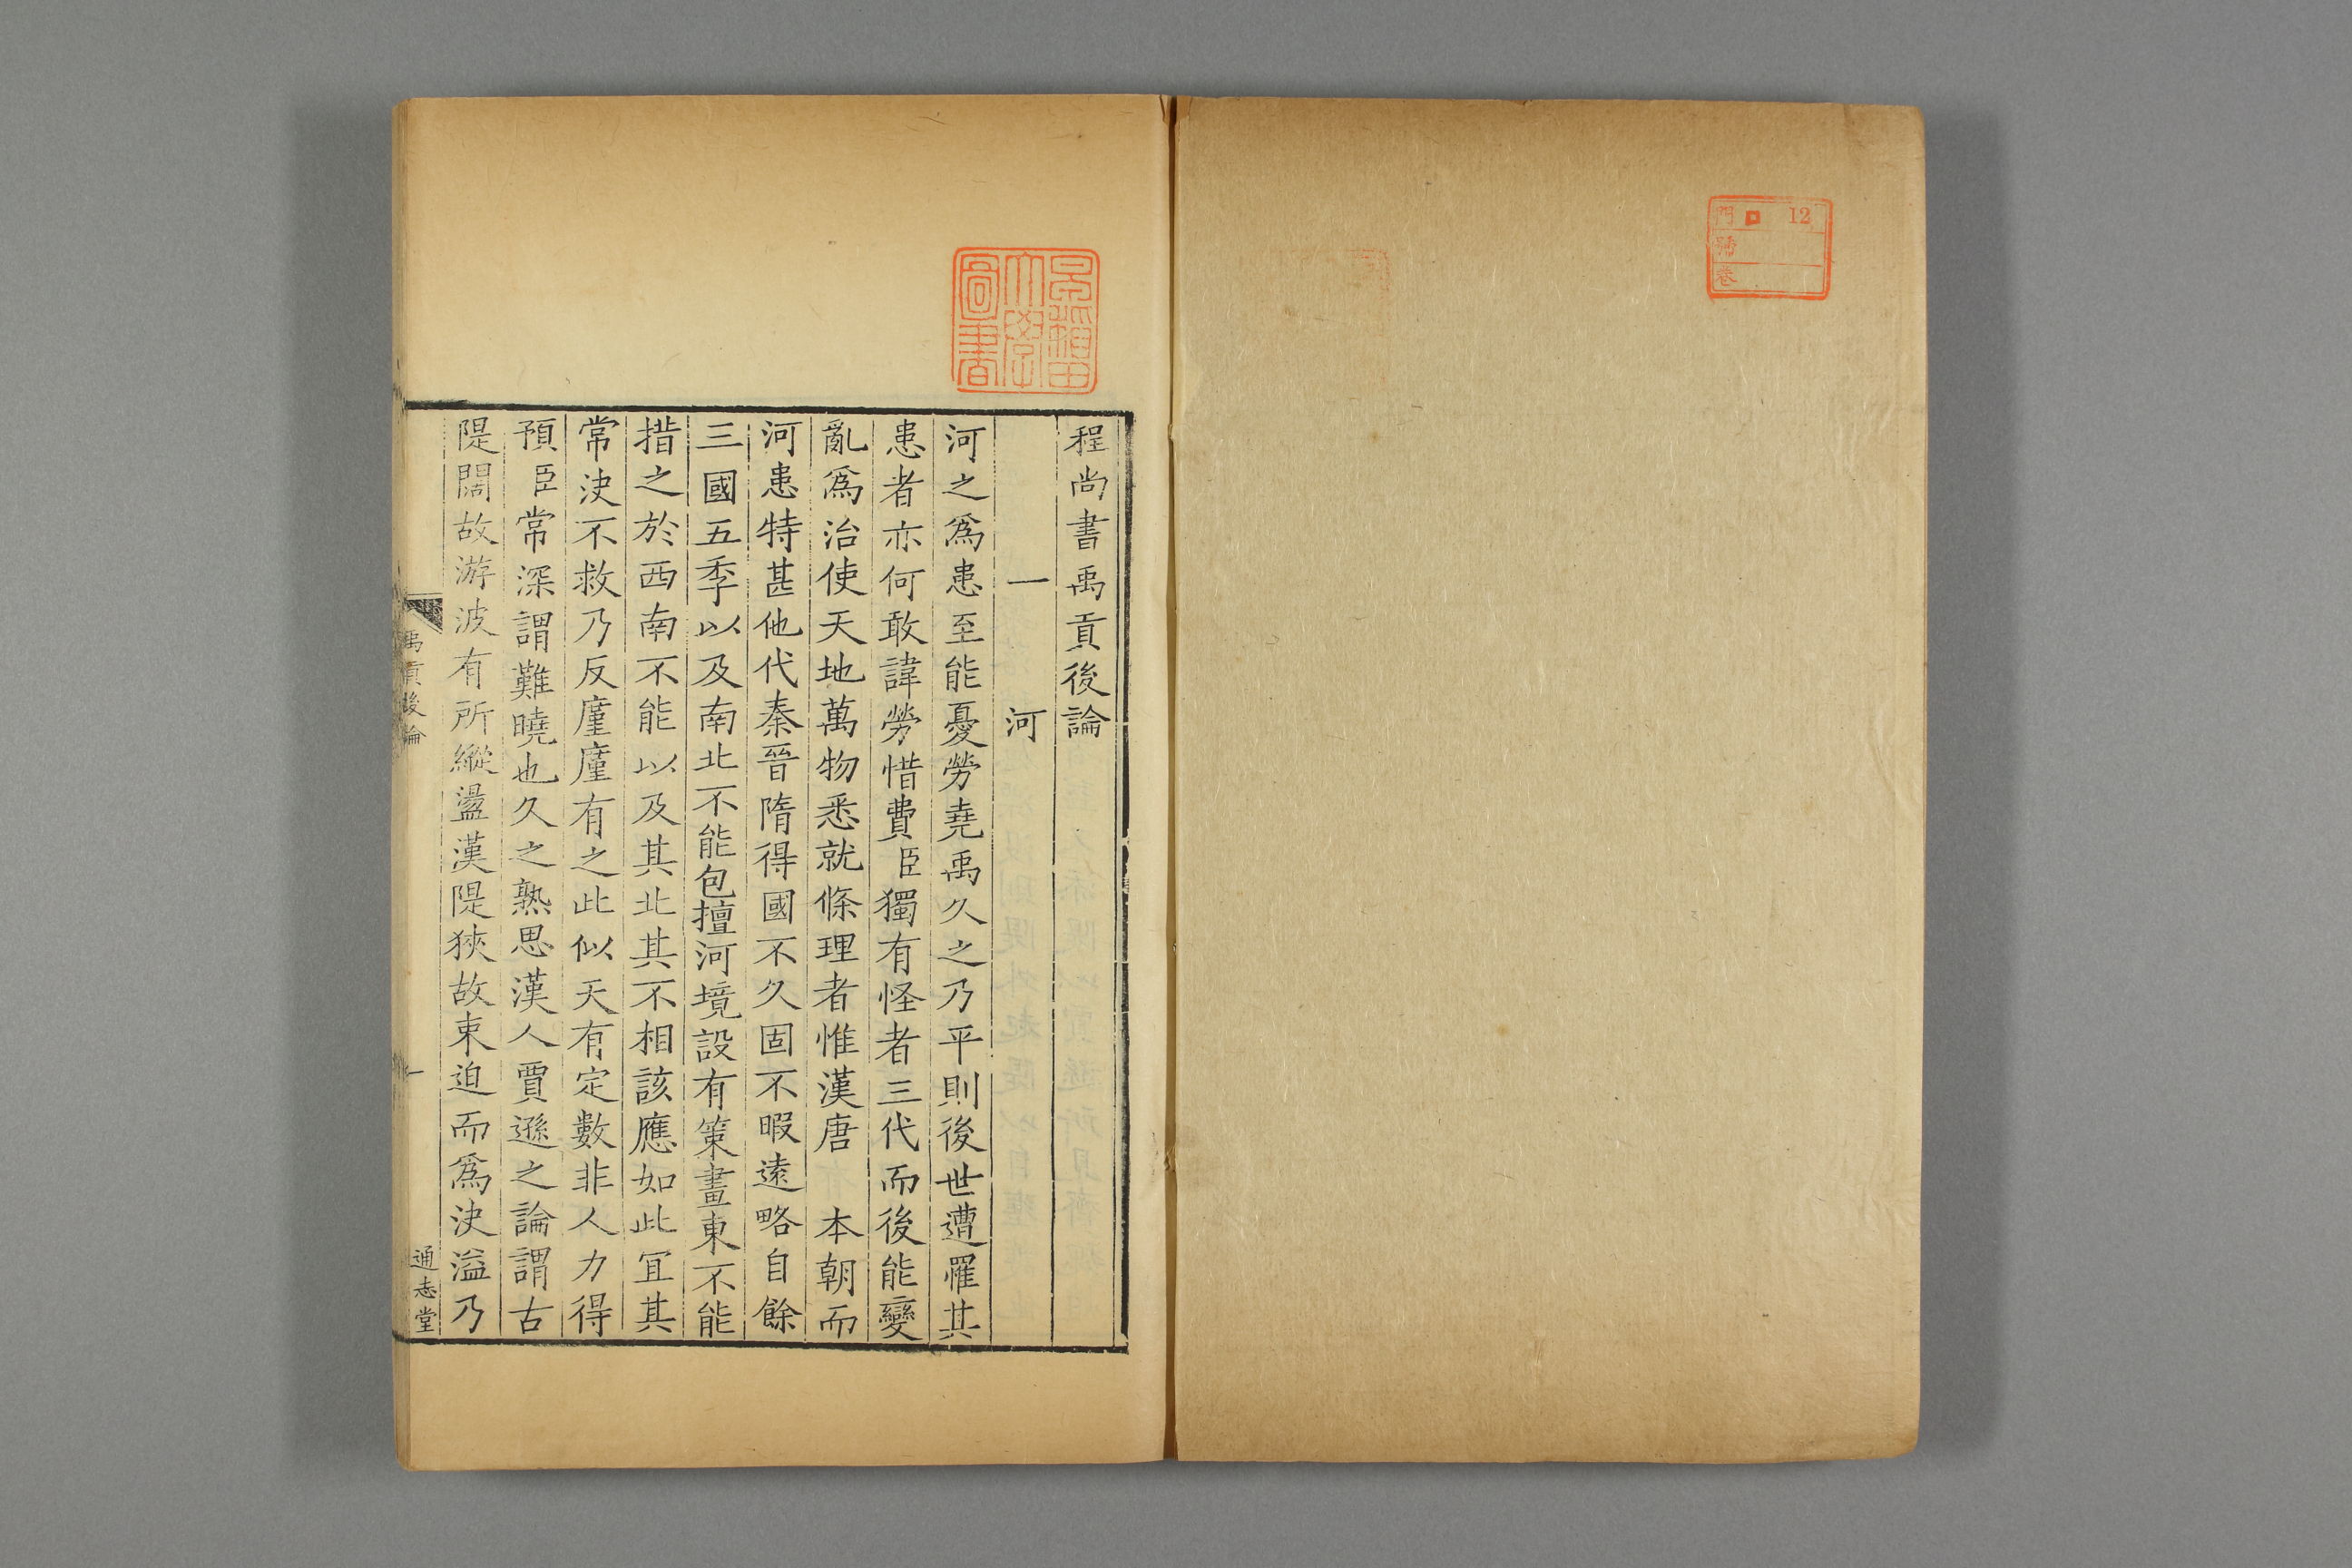 門 口 12
號
卷
早稲田
大學
圖書
程尚書禹貢後論
一 河
河之爲患至能憂勞堯禹久之乃平則後世遭罹其
患者亦何敢諱勞惜費臣獨有怪者三代而後能變
亂爲治使天地萬物悉就條理者惟漢唐 本朝而
河患特甚他代秦晉隋得國不久固不暇遠略自餘
三國五季以及南北不能包擅河境設有策畫東不能
措之於西南不能以及其北其不相該應如此宜其
常決不救乃反廑廑有之此似天有定數非人力得
預臣常深謂難曉也久之熟思漢人賈遜之論謂古
隄闊故游波有所縱盪漢隄狹故束迫而爲決溢乃
禹貢後論
一
通志堂